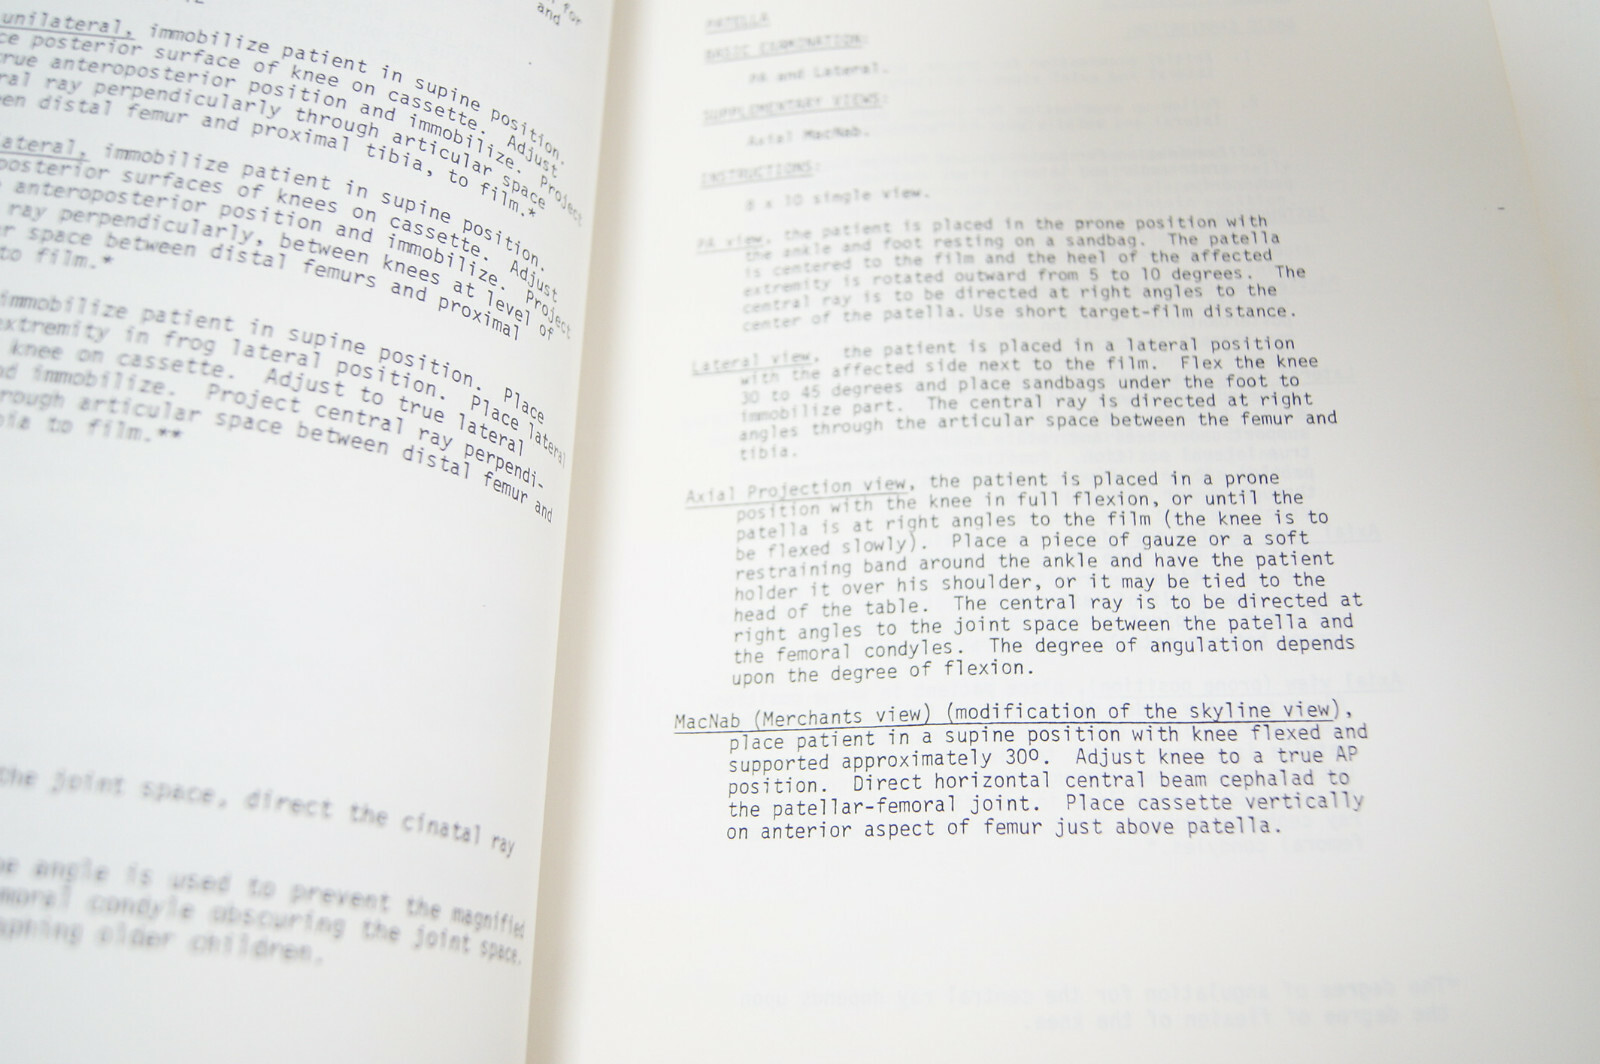 for
and
unilateral, immobilize patient in supine position.
ce posterior surface of knee on cassette. Adjust
rue anteroposterior position and immobilize. Project
ral ray perpendicularly through articular space
en distal femur and proximal tibia, to film.*
ateral, immobilize patient in supine position.
posterior surfaces of knees on cassette. Adjust
anteroposterior position and immobilize. Project
ray perpendicularly, between knees at level of
r space between distal femurs and proximal
to film.*
immobilize patient in supine position. Place
extremity in frog lateral position. Place lateral
knee on cassette. Adjust to true lateral
nd immobilize. Project central ray perpendi-
rough articular space between distal femur and
bia to film.**
the joint space, direct the cinatal ray
he angle is used to prevent the magnified
moral condyle obscuring the joint space.
aphing older children.
PATELLA
BASIC EXAMINATION:
PA and Lateral.
SUPPLEMENTARY VIEWS:
Axial MacNab.
INSTRUCTIONS:
8 x 10 single view.
PA view, the patient is placed in the prone position with
the ankle and foot resting on a sandbag. The patella
is centered to the film and the heel of the affected
extremity is rotated outward from 5 to 10 degrees. The
central ray is to be directed at right angles to the
center of the patella. Use short target-film distance.
Lateral view, the patient is placed in a lateral position
with the affected side next to the film. Flex the knee
30 to 45 degrees and place sandbags under the foot to
immobilize part. The central ray is directed at right
angles through the articular space between the femur and
tibia.
Axial Projection view, the patient is placed in a prone
position with the knee in full flexion, or until the
patella is at right angles to the film (the knee is to
be flexed slowly). Place a piece of gauze or a soft
restraining band around the ankle and have the patient
holder it over his shoulder, or it may be tied to the
head of the table. The central ray is to be directed at
right angles to the joint space between the patella and
the femoral condyles. The degree of angulation depends
upon the degree of flexion.
MacNab (Merchants view) (modification of the skyline view),
place patient in a supine position with knee flexed and
supported approximately 30º. Adjust knee to a true AP
position. Direct horizontal central beam cephalad to
the patellar-femoral joint. Place cassette vertically
on anterior aspect of femur just above patella.